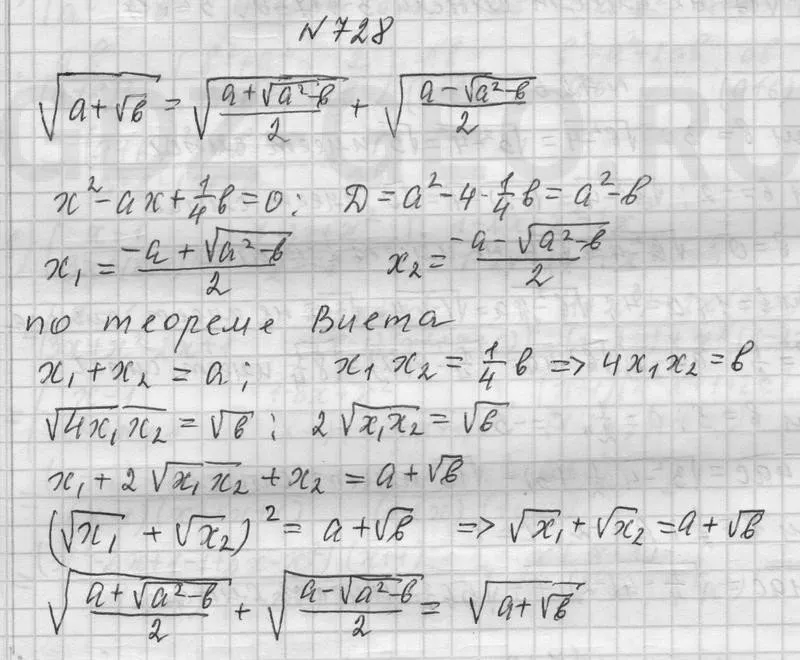 № 728
√(a + √b) = √((a + √(a² - b))/2) + √((a - √(a² - b))/2)
x² - ax + 1/4 b = 0; D = a² - 4 · 1/4 b = a² - b
x₁ = (-a + √(a² - b))/2 x₂ = (-a - √(a² - b))/2
по теореме Виета
x₁ + x₂ = a; x₁ x₂ = 1/4 b => 4x₁x₂ = b
√(4x₁x₂) = √b; 2√(x₁x₂) = √b
x₁ + 2√(x₁x₂) + x₂ = a + √b
(√x₁ + √x₂)² = a + √b => √x₁ + √x₂ = a + √b
√((a + √(a² - b))/2) + √((a - √(a² - b))/2) = √(a + √b)